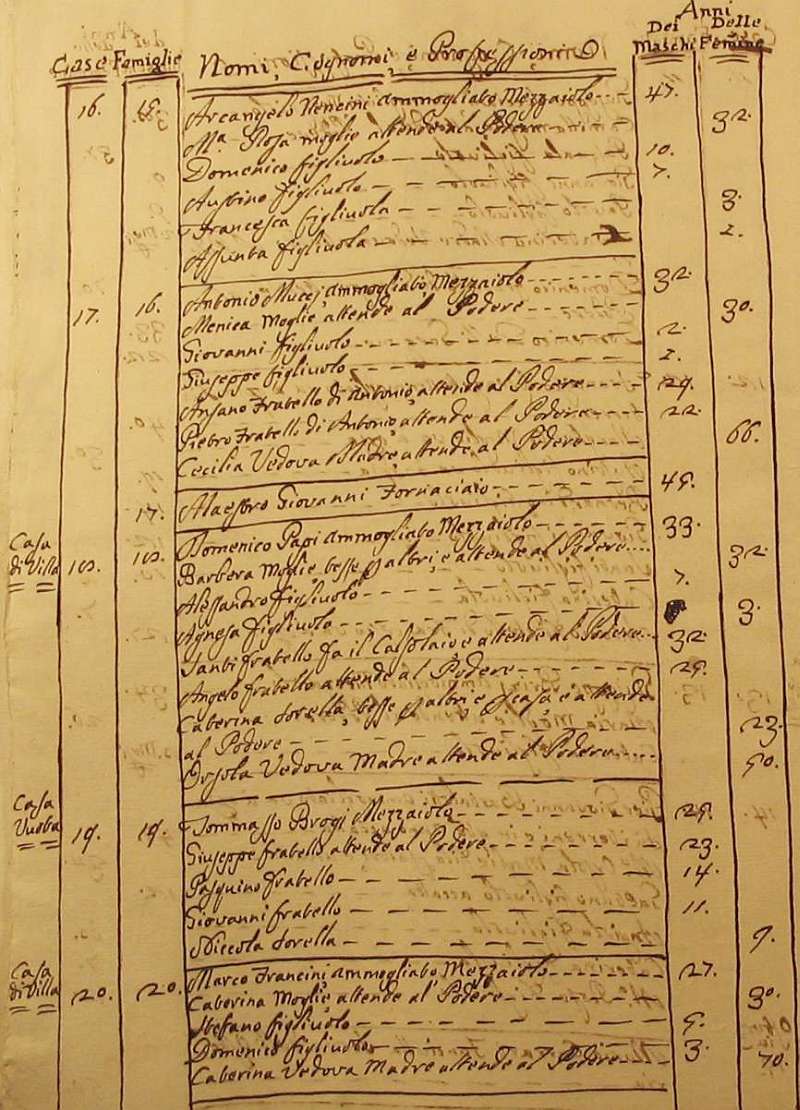 Anni
Case Famiglie Nomi, Cognomi, e Professioni Dei Maschi Delle Femine
16. 15. Arcangelo Nencini ammogliato Mezzaiolo 47.
Mª Rosa moglie attende al Podere 32.
Domenico figliuolo 10.
Austino figliuolo 7.
Francesca figliuola 3.
Assunta figliuola 2.
17. 16. Antonio Mucci ammogliato Mezzaiolo 32.
Menica Moglie attende al Podere 30.
Giovanni figliuolo 2.
Giuseppe figliuolo 1.
Ansano Fratello di Antonio, attende al Podere 29.
Pietro Fratello di Antonio, attende al Podere 22.
Cecilia Vedova Madre, attende al Podere 66.
17. Maestro Giovanni Fornaciaio 45.
Casa di Villa 18. 18. Domenico Papi Ammogliato Mezzaiolo 33.
Barbera Moglie, tesse p altri, e attende al Podere 32.
Alessandro figliuolo 7.
Agnesa figliuola 3.
Santi fratello fa il Calzolaio e attende al Podere 32.
Angelo fratello attende al Podere 25.
Caterina Sorella, tesse p altri e casa e attende
al Podere 23.
Orsola Vedova Madre attende al Podere 50.
Casa Vuota 19. 19. Tommasso Brogi Mezzaiolo 25.
Giuseppe fratello attende al Podere 23.
Pasquino fratello 14.
Giovanni fratello 11.
Niccola Sorella 9.
Casa di Villa 20. 20. Marco Francini, Ammogliato Mezzaiolo 27.
Caterina Moglie attende al Podere 30.
Stefano figliuolo 5.
Domenico figliuolo 3.
Caterina Vedova Madre attende al Podere 70.